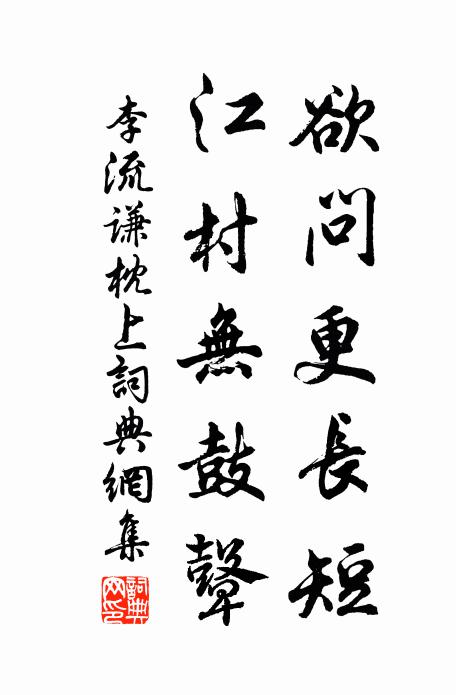 欲問更長短
江村無鼓鼙
李流謙枕上詞典網集
詞典網印